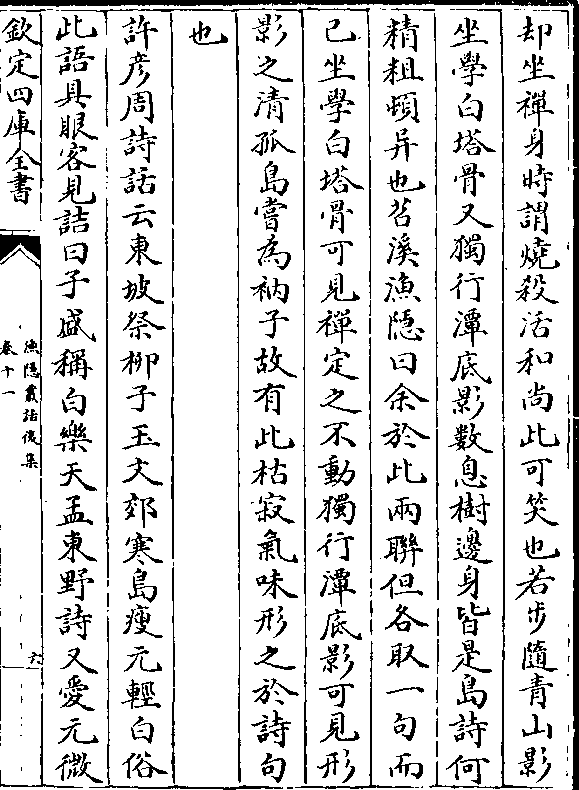 却坐禪身時謂燒殺活和尚此可笑也若步隨青山影
坐學白塔骨又獨行潭底影數息樹邊身皆是島詩何
精粗頓异也苕溪漁隱曰余於此兩聯但各取一句而
已坐學白塔骨可見禪定之不動獨行潭底影可見形
影之清孤島嘗為衲子故有此枯寂氣味形之於詩句
也
許彦周詩話云東坡祭栁子玉文郊寒島瘦元輕白俗
此語具眼客見詰曰子盛稱白樂天孟東野詩又愛元微
欽定四庫全書
漁隱叢話後集
卷十一
六